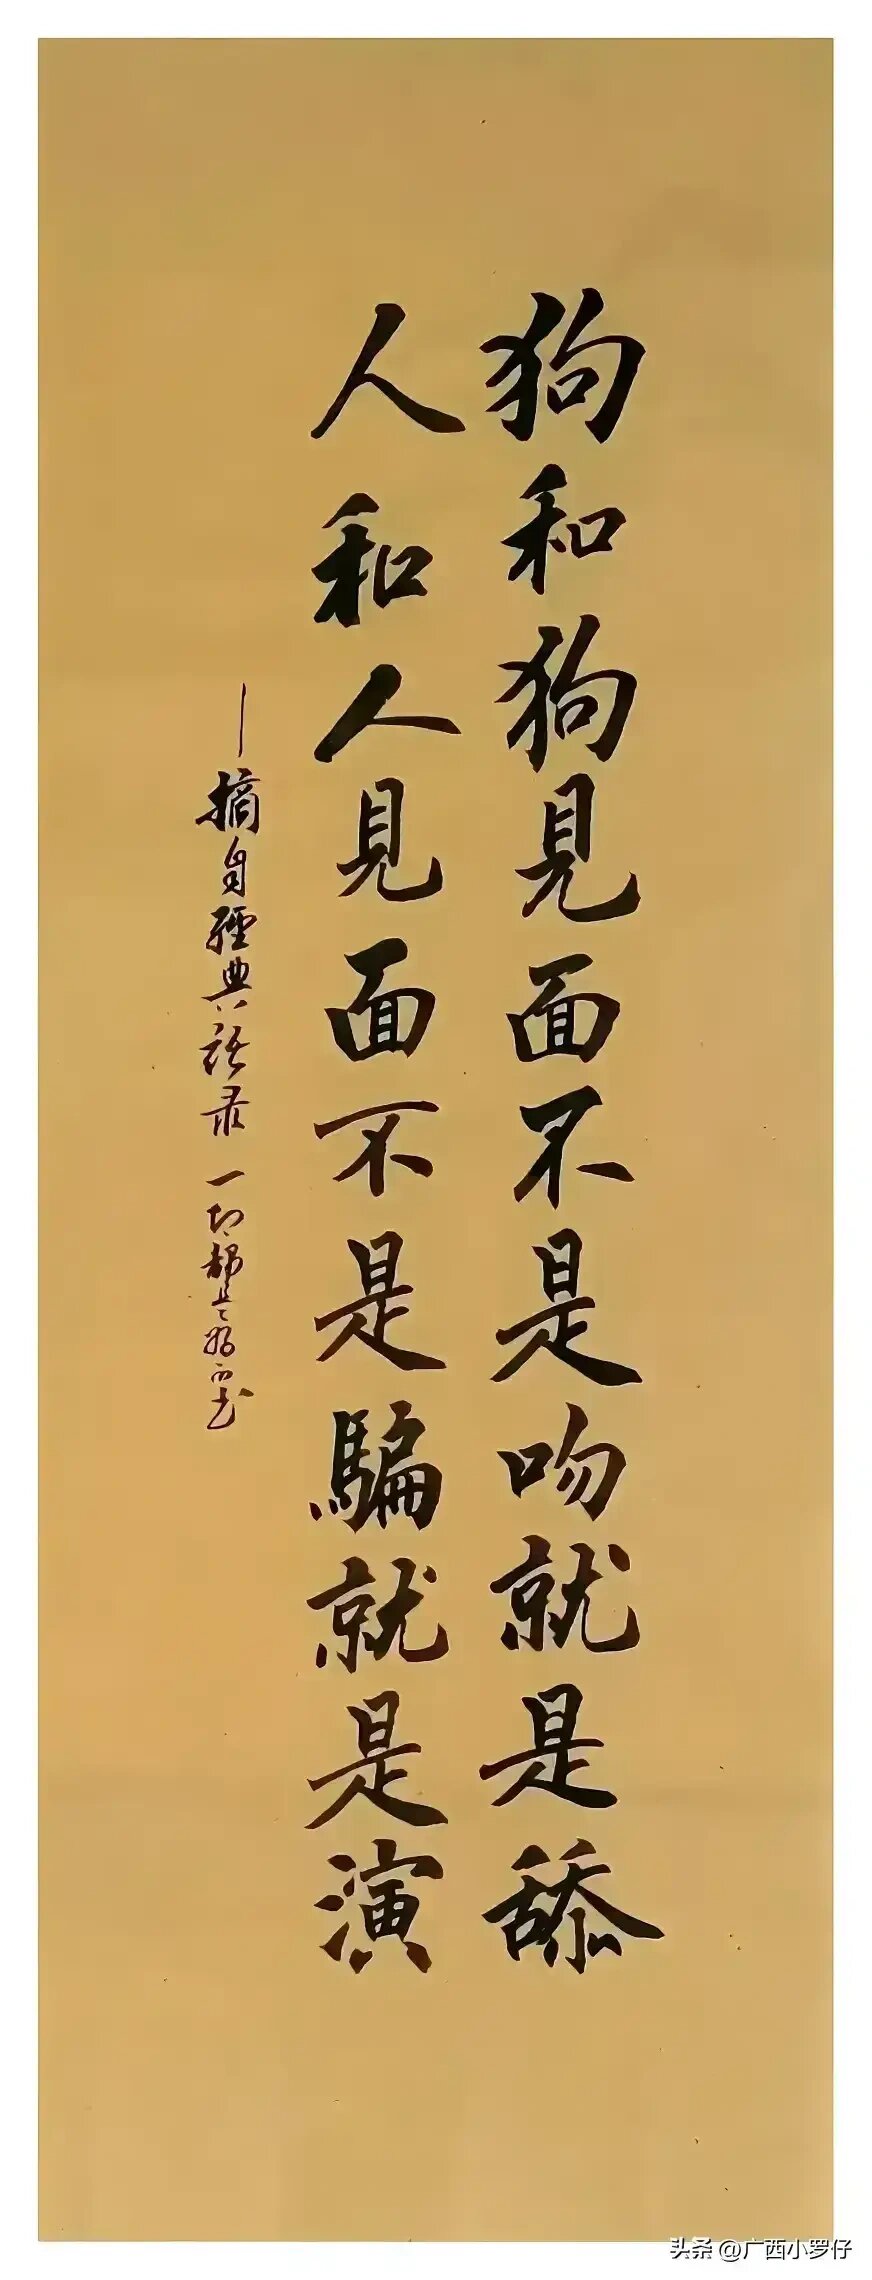 狗和狗見面不是吻就是舔
人和人見面不是騙就是演
—摘自經典语录 一切都是好
头条 @广西小罗仔